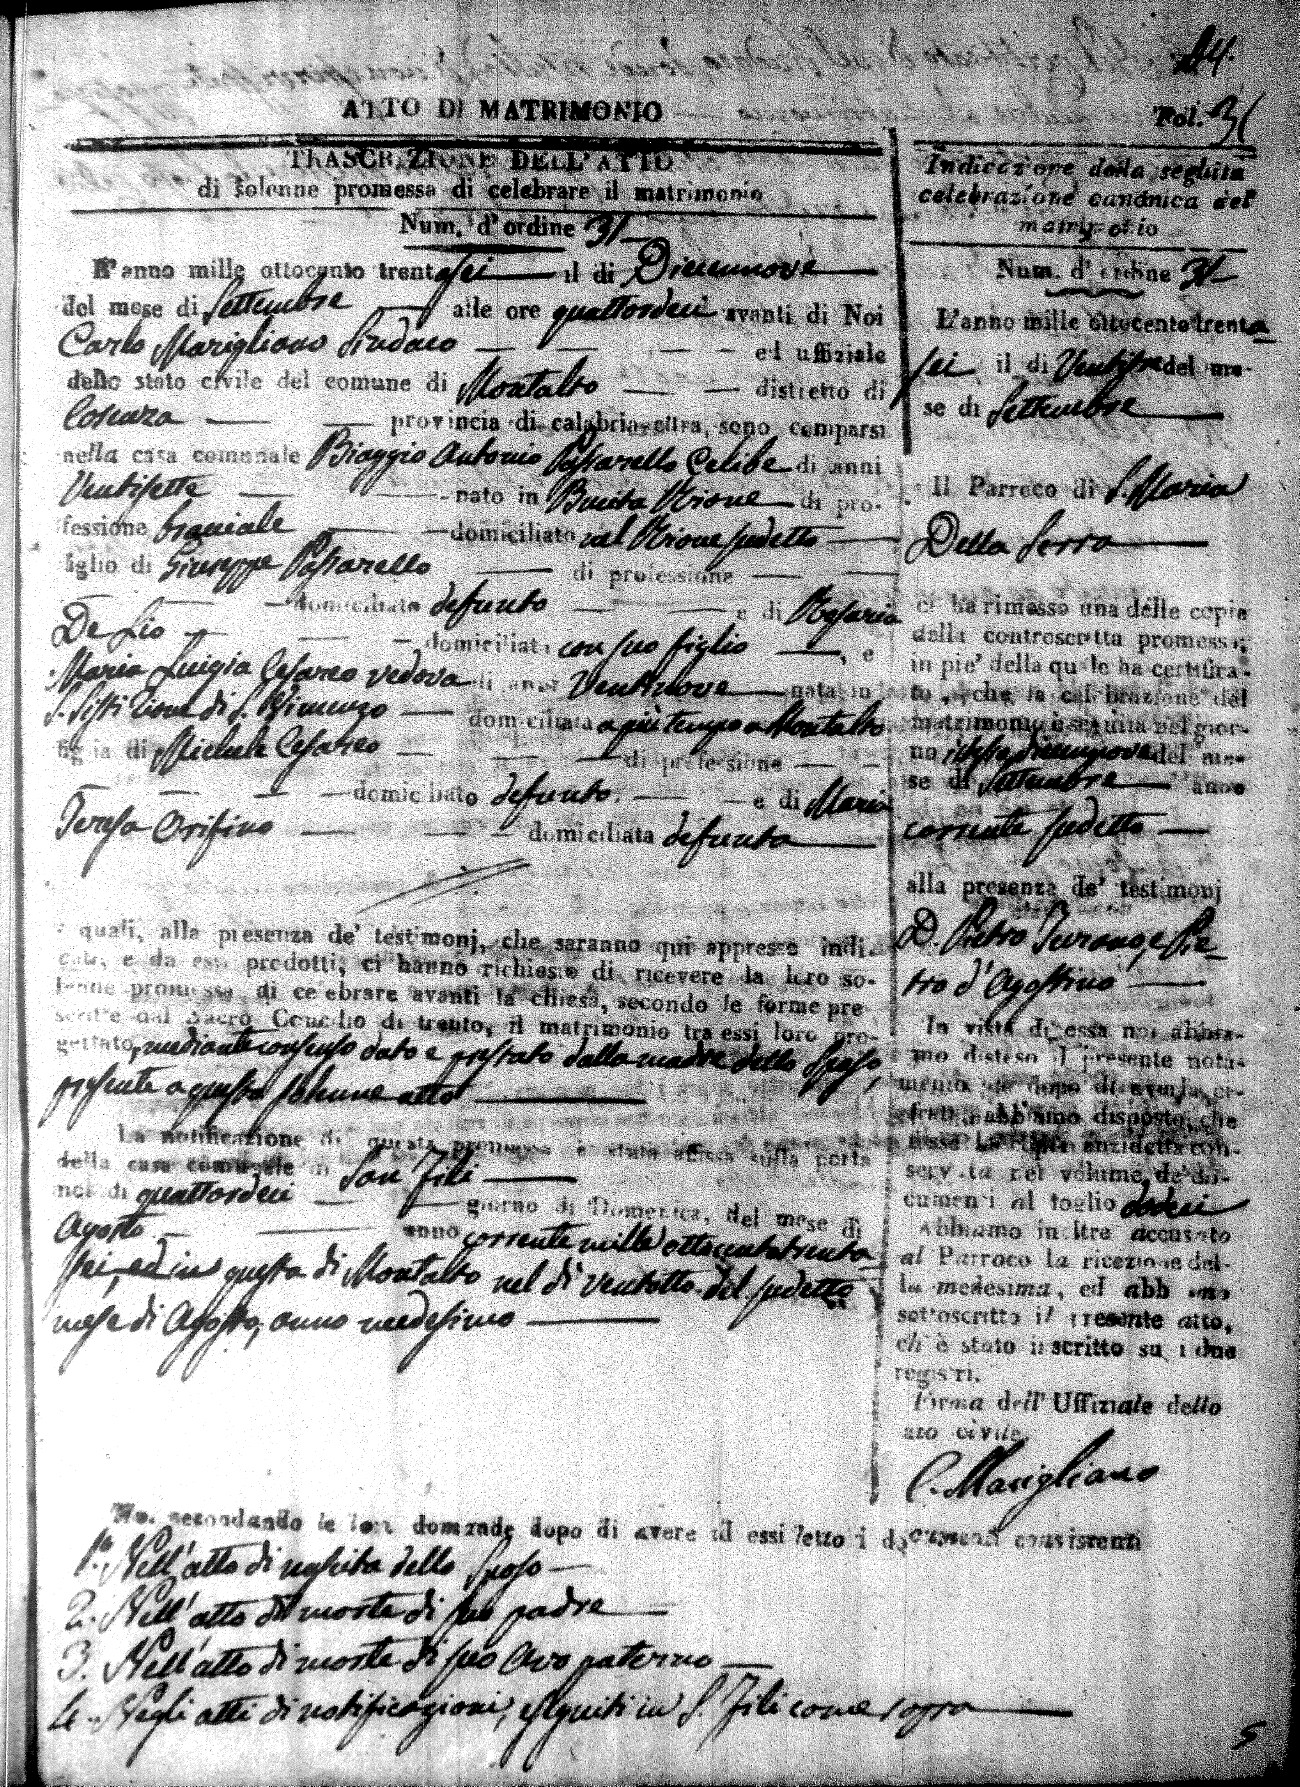 24.
ATTO DI MATRIMONIO
Fol. 31
TRASCRIZIONE DELL'ATTO
di solenne promessa di celebrare il matrimonio
Num. d'ordine 31
L'anno mille ottocento trentasei il di Diecennove
del mese di Settembre alle ore quattordeci avanti di Noi
Carlo Marigliano Sindaco ed uffiziale
dello stato civile del comune di Montalto distretto di
Cosenza provincia di calabria citra, sono comparsi
nella casa comunale Biaggio Antonio Passarello Celibe di anni
Ventisette nato in Bucita Rione di pro-
fessione braciale domiciliato nel Rione sudetto
figlio di Giuseppe Passarello di professione
domiciliato defunto e di Rosaria
De Lio domiciliata con suo figlio, e
Maria Luigia Cesareo vedova di anni Ventinove nata in
S. Sisti di S. Vincenzo domiciliata a più tempo a Montalto
figlia di Michele Cesareo di professione
domiciliato defunto e di Maria
Teresa Orifino domiciliata defunta
i quali, alla presenza de' testimonj, che saranno qui appresso indi-
cati, e da essi prodotti, ci hanno richiesto di ricevere la loro so-
lenne promessa di celebrare avanti la chiesa, secondo le forme pre
scritte dal Sacro Concilio di trento, il matrimonio tra essi loro pro-
gettato, mediante consenso dato e prestato dalla madre dello Sposo,
presente a questo solenne atto
La notificazione di questa promessa è stata affissa sulla porta
della casa comunale di San Fili
nel di quattordeci giorno di Domenica, del mese di
Agosto anno corrente mille ottocentotrenta
sei, ed in questa di Montalto nel di ventotto del sudetto
mese di Agosto, anno medesimo
Noi secondando le loro domande dopo di avere ad essi letto i documenti consistenti
1.° Nell'atto di nascita dello Sposo
2. Nell'atto di morte di suo padre
3. Nell'atto di morte di suo Avo paterno
4. Negli atti di notificazioni, eseguiti in S. Fili come sopra
Indicazione della seguita
celebrazione canonica del
matrimonio
Num. d'ordine 31
L'anno mille ottocento trenta
sei il di Ventitre del me-
se di Settembre
Il Parroco di S. Maria
Della Serra
ci ha rimesso una delle copie
della controscritta promessa,
in piè della quale ha certifica-
to, che la celebrazione del
matrimonio è seguita nel gior-
no istesso diecennove del me-
se di Settembre anno
corrente sudetto
alla presenza de' testimonj
D. Pietro Turano, e Pie-
tro d'Agostino
In vista di essa noi abbia-
mo disteso il presente nota-
mento, e dopo di averla ci-
frata, abbiamo disposto, che
fosse la copia anzidetta con-
servata nel volume de' do-
cumenti al foglio dodeci
Abbiamo inoltre accusato
al Parroco la ricezione del-
la medesima, ed abbiamo
sottoscritto il presente atto,
ch'è stato inscritto su i due
registri.
Firma dell'Uffiziale dello
stato civile.
C. Marigliano